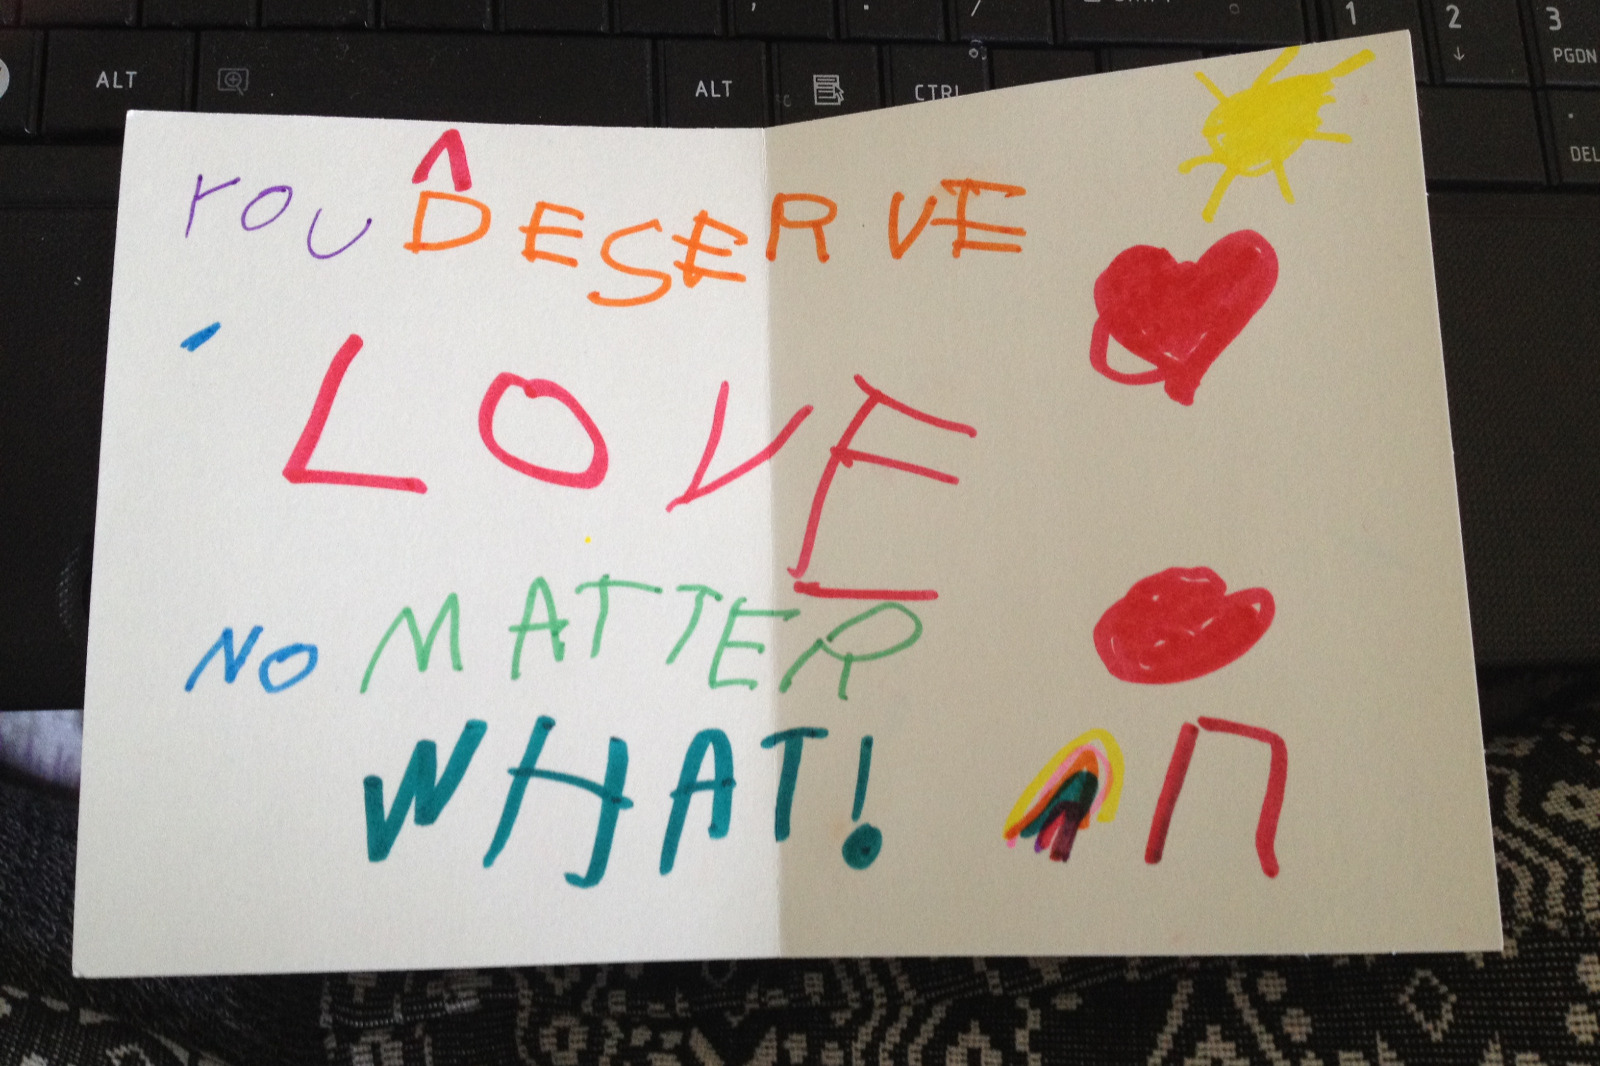 1 2 3
↓ PGDN
ALT ALT CTRL
DEL
YOU DESERVE
LOVE
NO MATTER
WHAT!